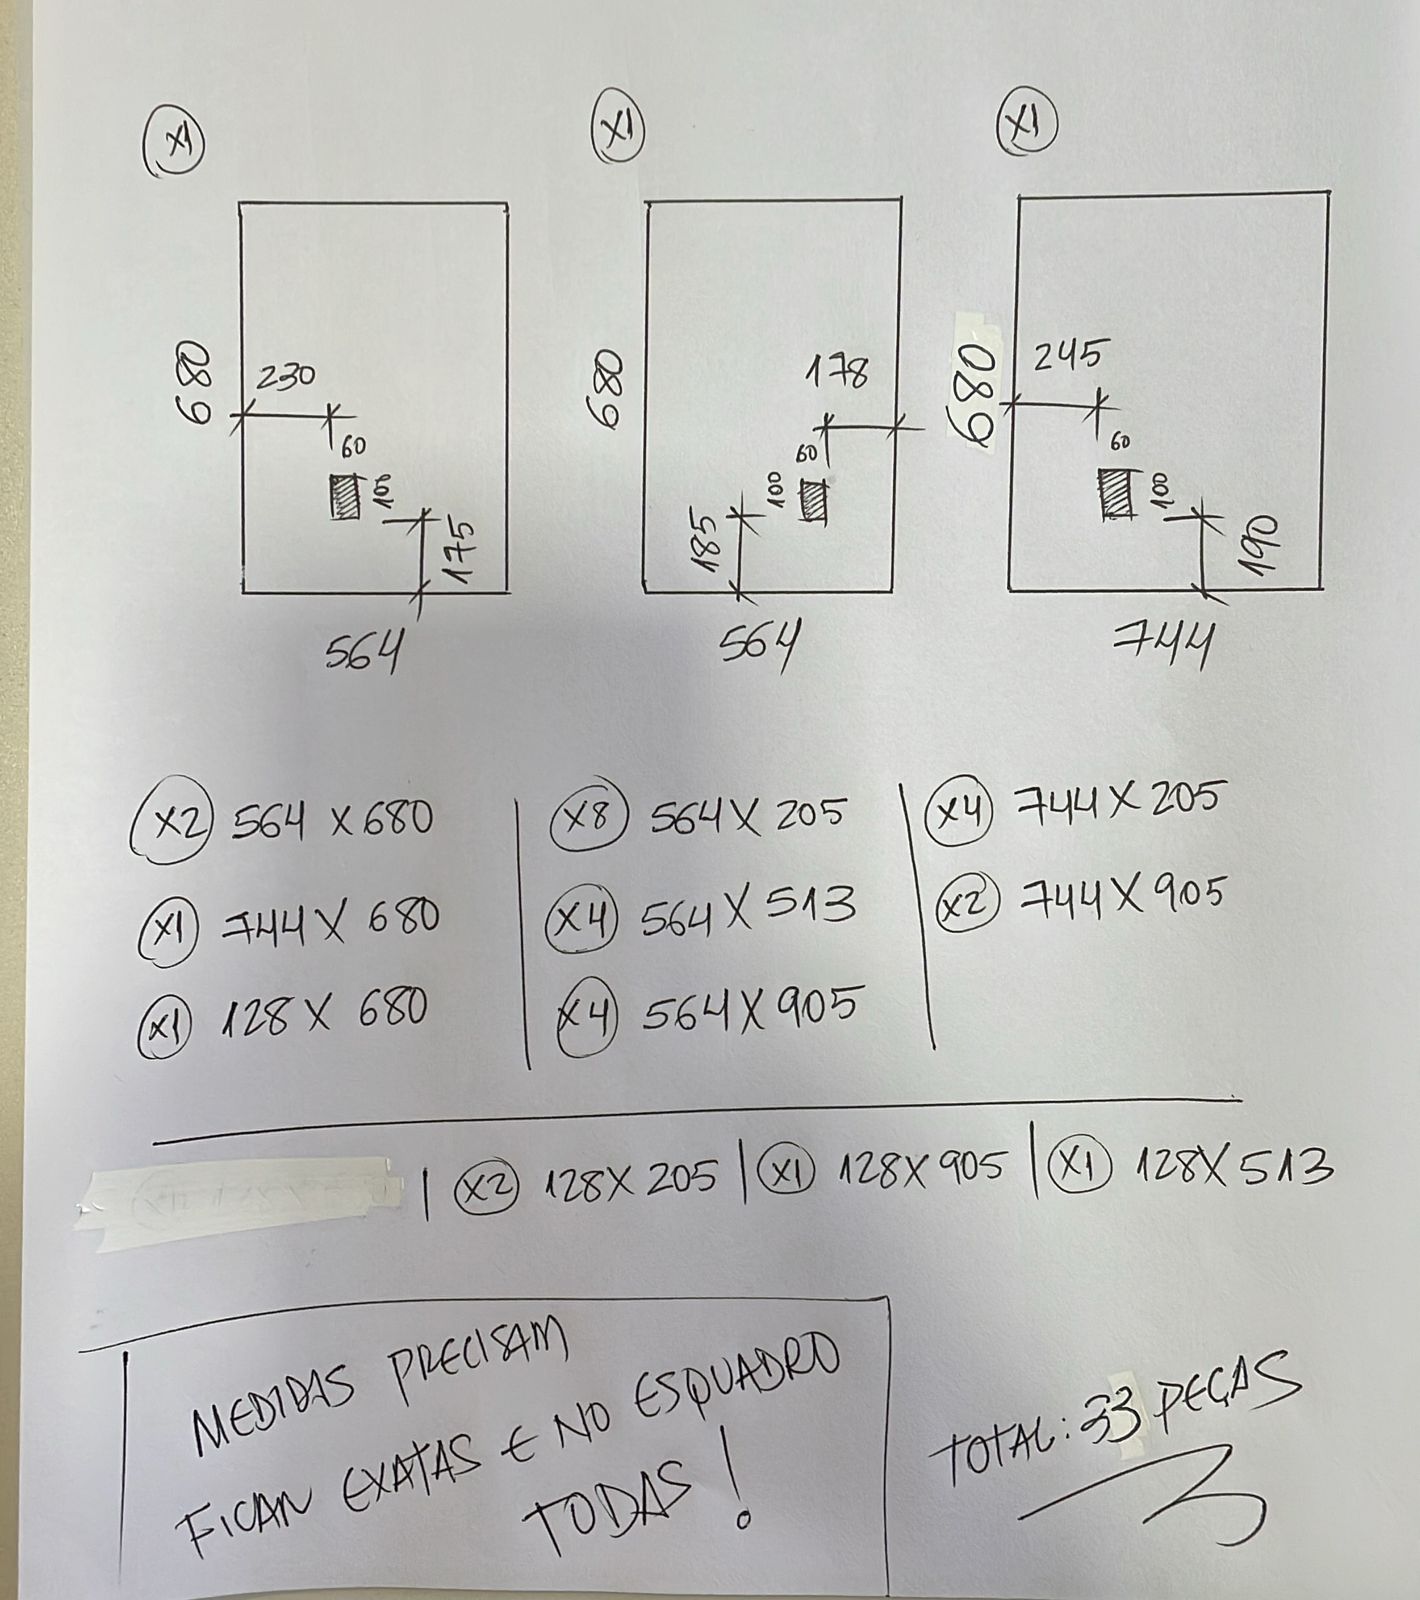 X1
X1
X1
680
230
60
100
175
564
680
178
60
100
185
564
680
245
60
100
190
744
X2 564 X 680
X1 744 X 680
X1 128 X 680
X8 564 X 205
X4 564 X 513
X4 564 X 905
X4 744 X 205
X2 744 X 905
| X2 128 X 205 | X1 128 X 905 | X1 128 X 513
MEDIDAS PRECISAM
FICAN EXATAS E NO ESQUADRO
TODAS!
TOTAL: 33 PEÇAS